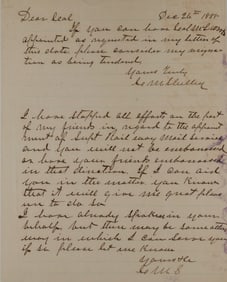 Dear Deal Dec 26th 188
If you can have Col
appointed as requested in my letter of
this date please consider my resigna
tion as being tendered.
Yours Truly
I have stopped all efforts on the part
of my friends in regard to the appoint
ment of Supt Rail way Mail Service
and you will not be embarrassed
or have your friends embarrassed
in that direction. If I can aid
you in the matter you know
that it will give me great pleas
ure to do so.
I have already spoken in your
behalf, but there may be some other
way in which I can serve you
if so please let me know
Yours &c